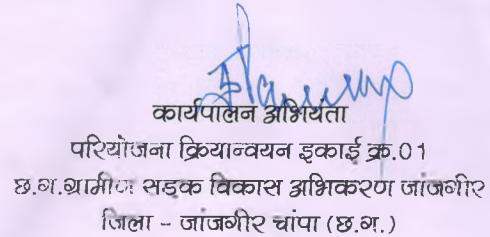 कार्यपालन अभियंता
परियोजना क्रियान्वयन इकाई क्र.01
छ.ग.ग्रामीण सड़क विकास अभिकरण जांजगीर
जिला - जांजगीर चांपा (छ.ग.)